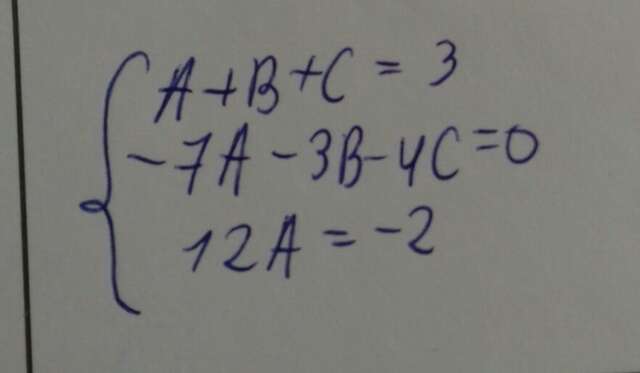 A+B+C = 3
-7A-3B-4C=0
12A = -2